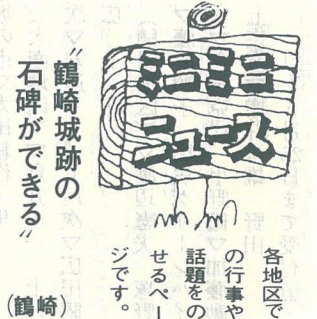 ミニミニ
ニュース
各地区で
の行事や
話題をの
せるペー
ジです。
〝鶴崎城跡の
石碑ができる〟
(鶴崎)